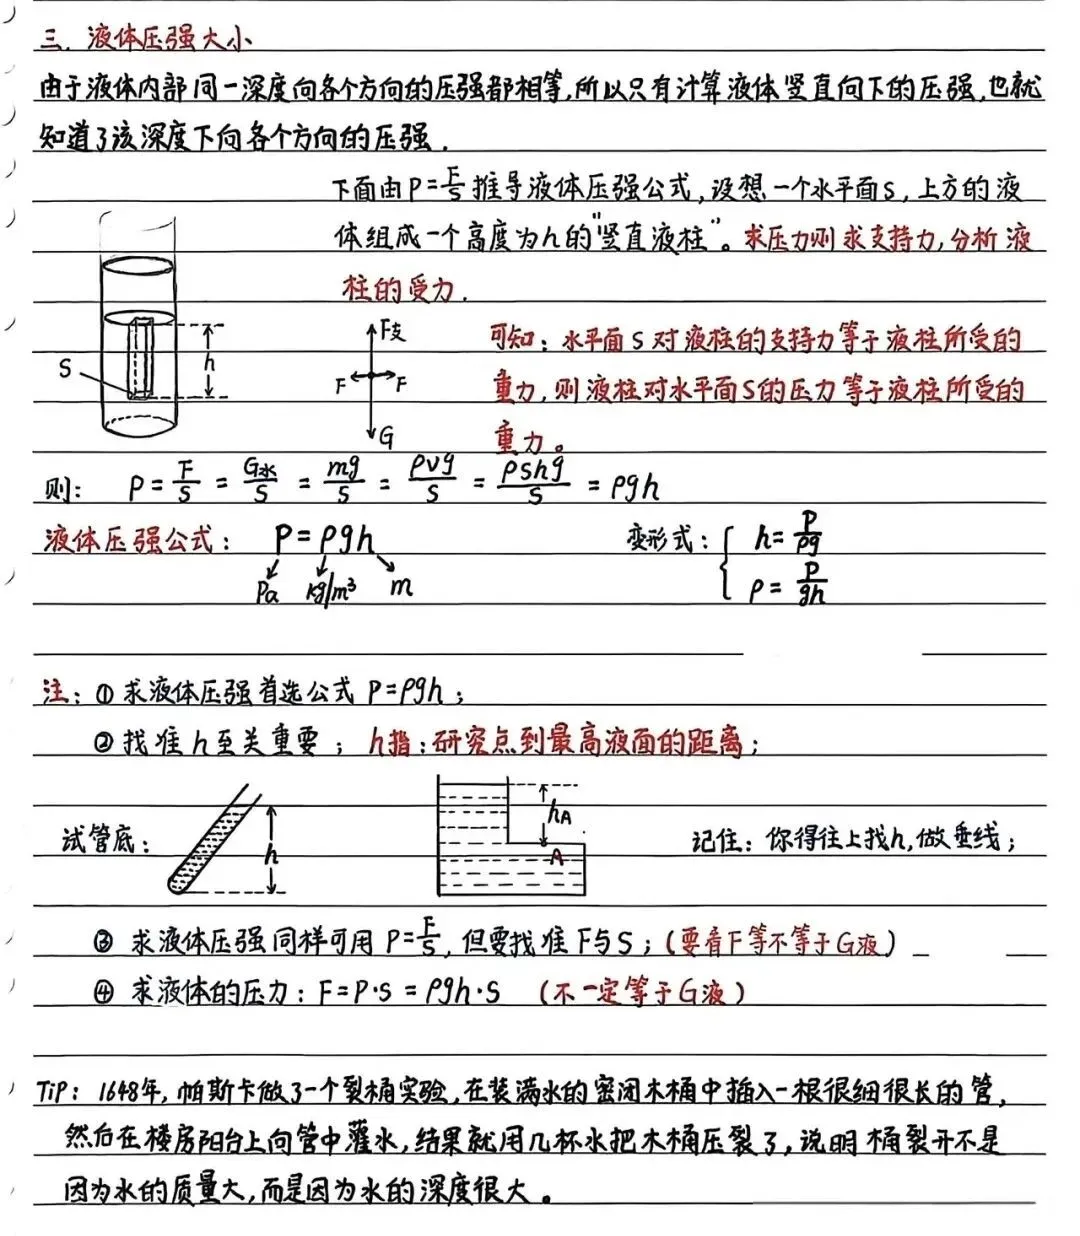 三. 液体压强大小
由于液体内部同一深度向各个方向的压强都相等,所以只有计算液体竖直向下的压强,也就
知道了该深度下向各个方向的压强.
下面由P=F/S推导液体压强公式,设想一个水平面S,上方的液
体组成一个高度为h的"竖直液柱"。求压力则求支持力,分析液
柱的受力.
S h
F支
F F
G
可知:水平面S对液柱的支持力等于液柱所受的
重力,则液柱对水平面S的压力等于液柱所受的
重力。
则: P=F/S=G水/S=mg/S=ρvg/S=ρshg/S=ρgh
液体压强公式: P=ρgh 变形式:{ h=P/ρg
Pa kg/m³ m ρ=P/gh
注:①求液体压强首选公式P=ρgh;
②找准h至关重要;h指:研究点到最高液面的距离;
试管底: h hA A 记住:你得往上找h,做垂线;
③ 求液体压强同样可用P=F/S,但要找准F与S;(要看F等不等于G液)
④ 求液体的压力:F=P·S=ρgh·S (不一定等于G液)
TiP: 1648年,帕斯卡做了一个裂桶实验,在装满水的密闭木桶中插入一根很细很长的管,
然后在楼房阳台上向管中灌水,结果就用几杯水把木桶压裂了,说明桶裂开不是
因为水的质量大,而是因为水的深度很大。